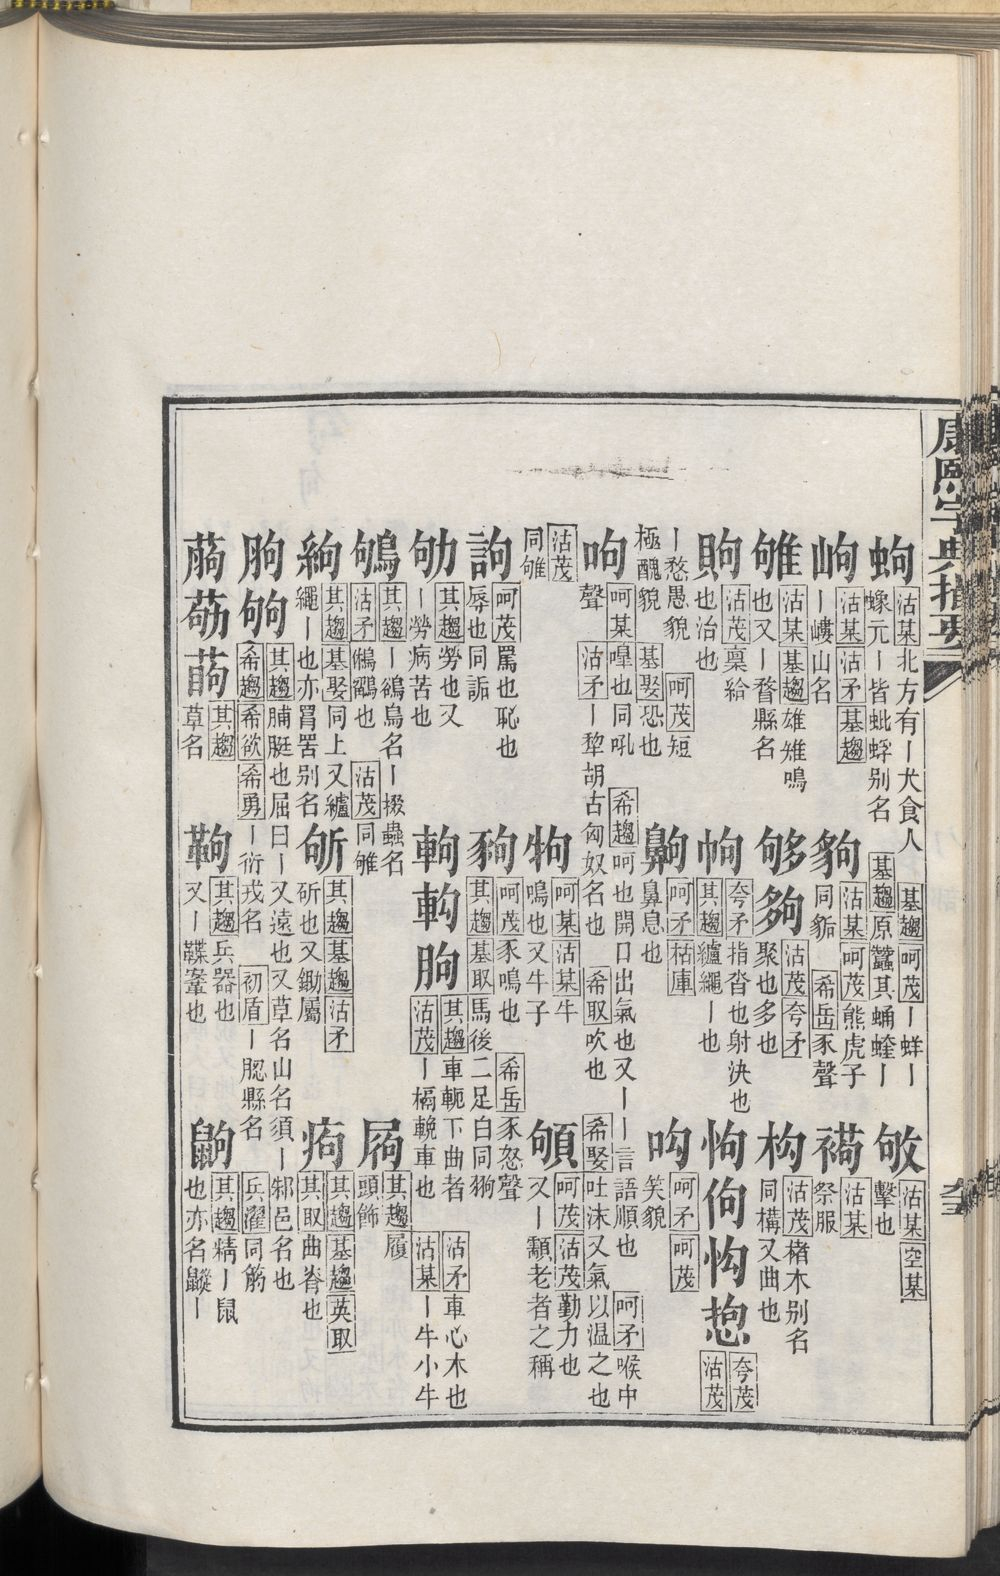 康熙字典指要
蚼 沽某 北方有〡犬食人 蟓元〡皆蚍蜉别名 基趨 呵茂 〡蛘〡 基趨 原蠶其蛹螻〡 敂 沽某 空某 擊也
岣 沽某 沽矛 基趨 〡嶁山名 豿 沽某 呵茂 熊虎子 同貈 希岳 豕聲 沽某 祭服
雊 沽某 基趨 雄雉鳴也又〡瞀縣名 够夠 沽茂 夸矛 聚也多也 构 沽茂 楮木别名 同構又曲也
沽茂 稟給也治也 夸矛 指沓也射決也 其趨 纑繩〡也 怐佝 夸茂 沽茂
〡愁愚貌 呵茂 短極醜貌 基娶 恐也 齁 呵矛 枯庫 鼻息也 呵矛 呵茂 笑貌
呴 呵某 嘷也同吼 希趨 呵也開口出氣也又〡〡言語順也 呵矛 喉中聲 沽矛 〡犂胡古匈奴名也 希取 吹也 希娶 吐沫又氣以温之也
沽茂 同雊 呵某 沽某 牛鳴也又牛子 呵茂 沽茂 勤力也又〡顬老者之稱
詢 呵茂 罵也恥也辱也同詬 呵茂 豕鳴也 希岳 豕怒聲 其趨 基取 馬後二足白同狗
劬 其趨 勞也又〡勞病苦也 軥 其趨 車軛下曲者 沽茂 〡槅輓車也 沽矛 車心木也 沽某 〡牛小牛
鴝 其趨 〡鵒鳥名〡掇蟲名 沽矛 鵂鶹也 沽茂 同雊 其趨 履頭飾
絇 其趨 基娶 同上又纑繩〡也亦罥罟别名 斪 其趨 基趨 沽矛 斫也又鋤屬 痀 其趨 基趨 英取 其取 曲脊也
朐 其趨 脯脡也屈曰〡又遠也又草名山名須〡邾邑名也 希趨 希欲 希勇 〡衍戎名 初盾 〡䏰縣名 兵濯 同筋
其趨 草名 其趨 兵器也又〡鞢䡖也 鼩 其趨 精〡鼠也亦名鼨〡